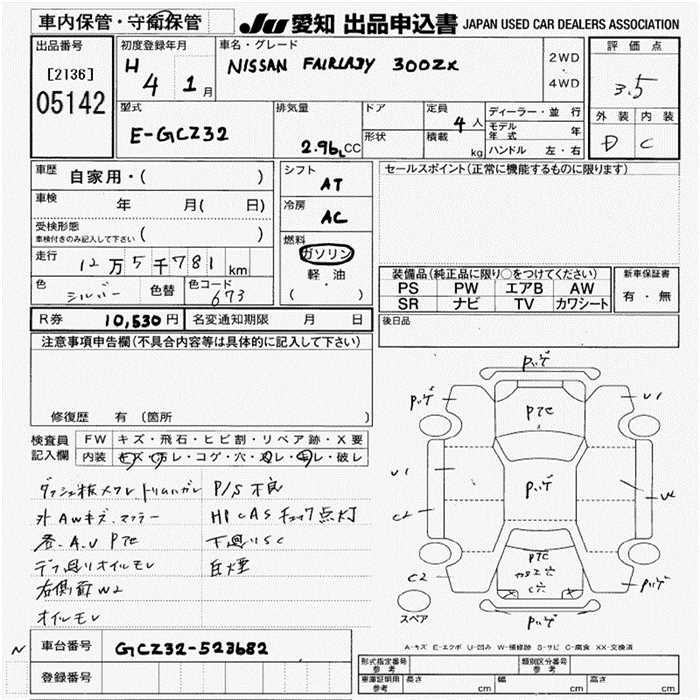 車内保管・守衛保管
JU 愛知 出品申込書 JAPAN USED CAR DEALERS ASSOCIATION
出品番号
[2136]
05142
初度登録年月
H 4 1月
車名・グレード
NISSAN FAIRLADY 300ZX
2WD
・
4WD
評価点
3.5
外装 内装
D C
型式
E-GCZ32
排気量
2.96L CC
ドア
形状
定員
4人
積載
kg
ディーラー・並行
モデル年式 年
ハンドル 左・右
車歴
自家用・( )
車検
年 月( 日)
受検形態
車検付きのみ記入して下さい ( )
走行
12万5千781km
色
シルバー
色替
色コード
673
シフト
AT
冷房
AC
燃料
ガソリン
軽油
( ・ )
セールスポイント(正常に機能するものに限ります)
装備品(純正品に限り○をつけてください)
PS PW エアB AW
SR ナビ TV カワシート
新車保証書
有・無
R券 10,530円 名変通知期限 月 日
後日品
注意事項申告欄(不具合内容等は具体的に記入して下さい)
修復歴 有 (箇所 )
検査員記入欄
FW キズ・飛石・ヒビ割・リペア跡・X要
内装 キズ・汚レ・コゲ・穴・スレ・キレ・破レ
P/S不良
外AWキズ、マフラー
チェック点灯
各、A、U PTE
下廻りSC
デフ廻りオイルモレ
白煙
右側前W2
オイルモレ
パッゲ
パッゲ
U1
PTE
U1
パッゲ
C2
PTE
C穴
C2
パッゲ
パッゲ
スペア
A-キズ E-エクボ U-凹み W-補修跡 S-サビ C-腐食 XX-交換済
N
車台番号 GCZ32-523682
登録番号
型式指定番号 参考
類別区分番号 参考
車庫証明用 参考
長さ cm 幅 cm 高さ cm